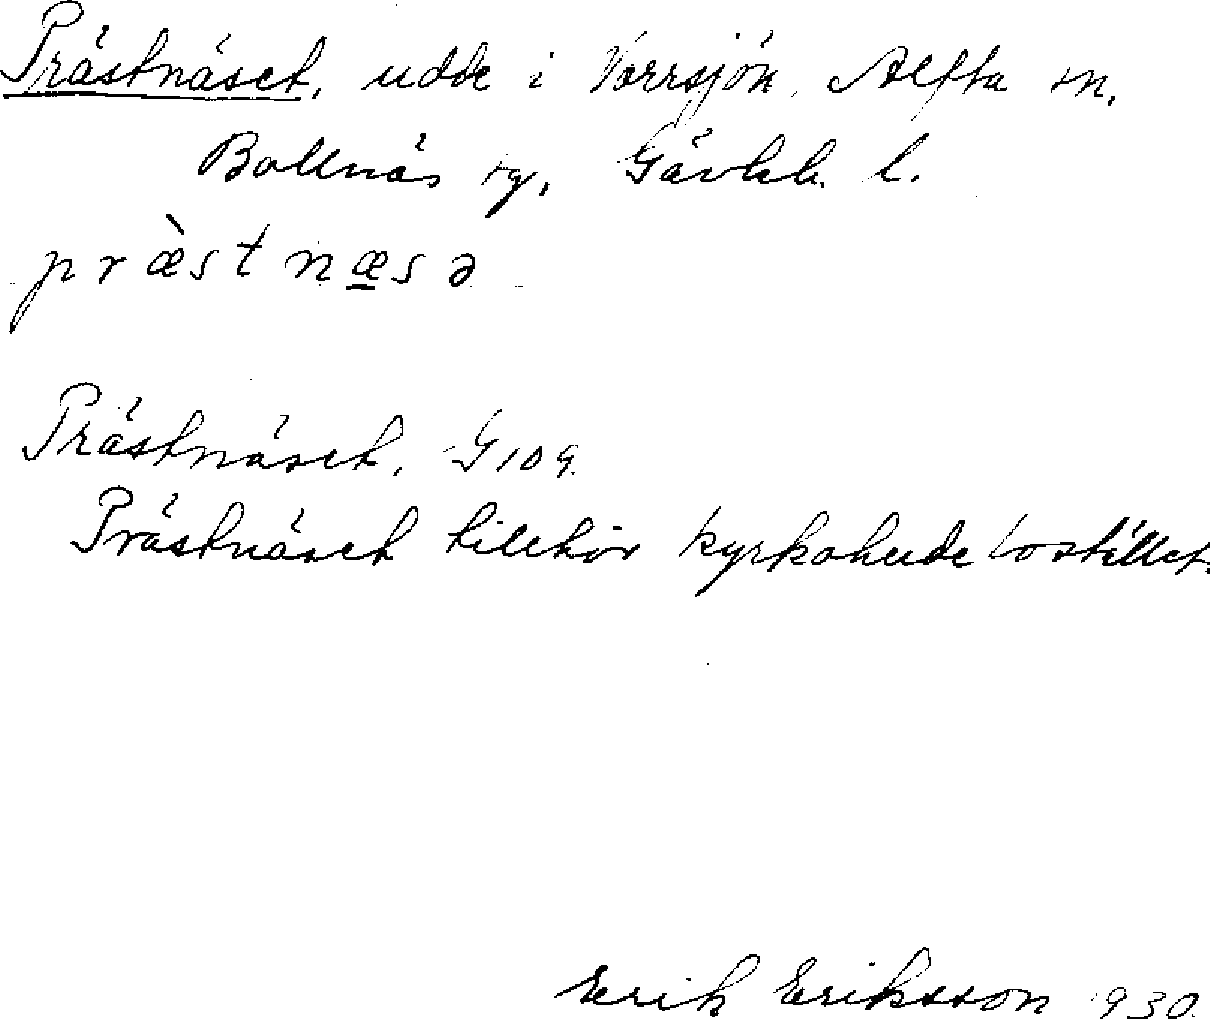 Prästnäset, udde i Vorrsjön, Alfta sn,
Bollnäs tg, Gävleb. l.
præ̀stnæ̱sə
Prästnäset. G 109.
Prästnäset tillhör kyrkoherdebostället.
Erik Eriksson 1930.